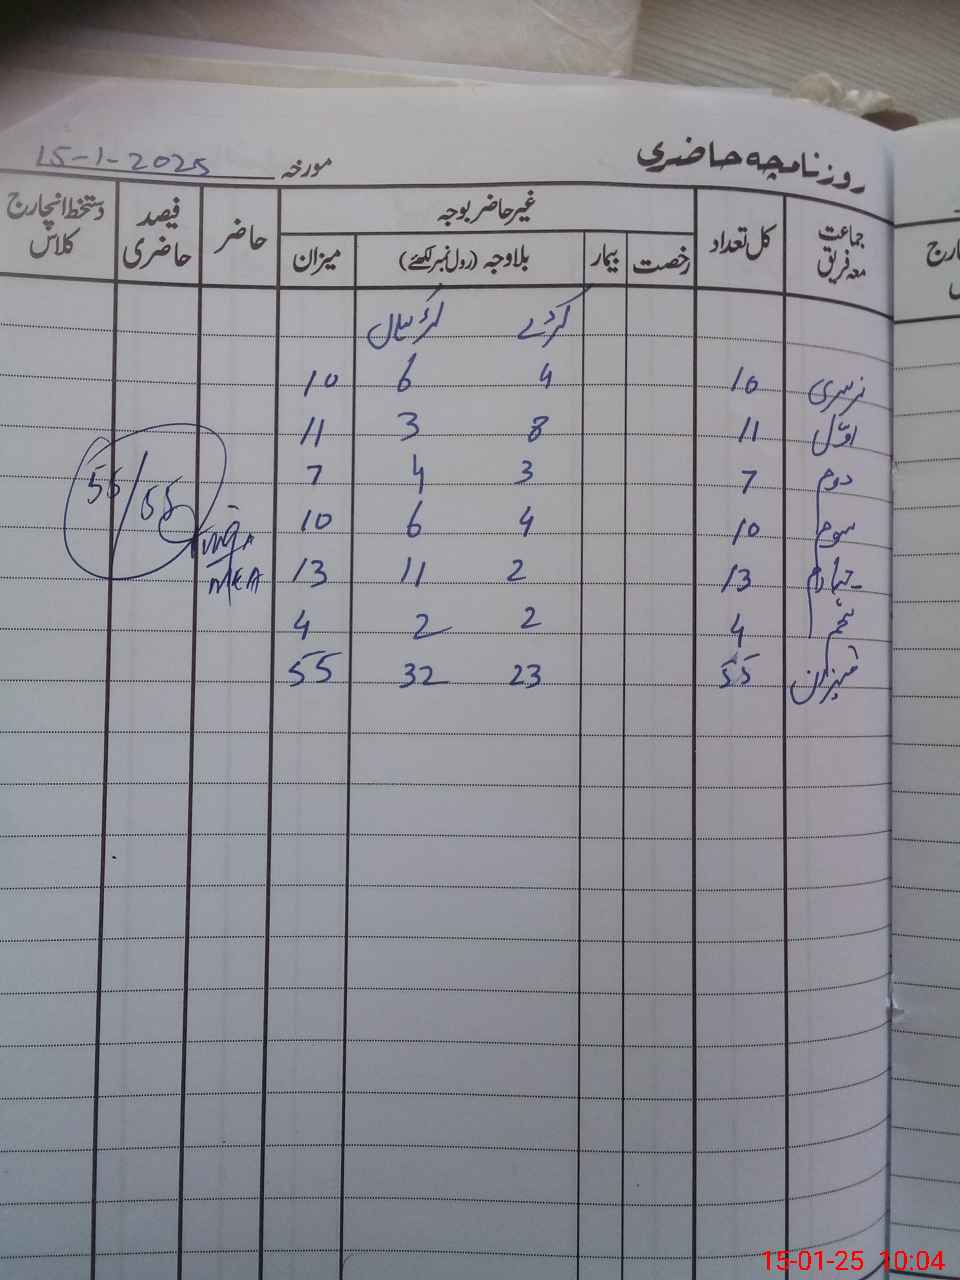 روزنامچہ حاضری
مورخہ 15-1-2025
جماعت معہ فریق کل تعداد غیر حاضر بوجہ حاضر فیصد حاضری دستخط انچارج کلاس
رخصت بیمار بلاوجہ (رول نمبر لکھئے) میزان
لڑکے لڑکیاں
نرسری 10 4 6 10
اوّل 11 8 3 11
دوم 7 3 4 7
سوم 10 4 6 10
چہارم 13 2 11 13
پنجم 4 2 2 4
میزان 55 23 32 55
55/55
MEA
15-01-25 10:04